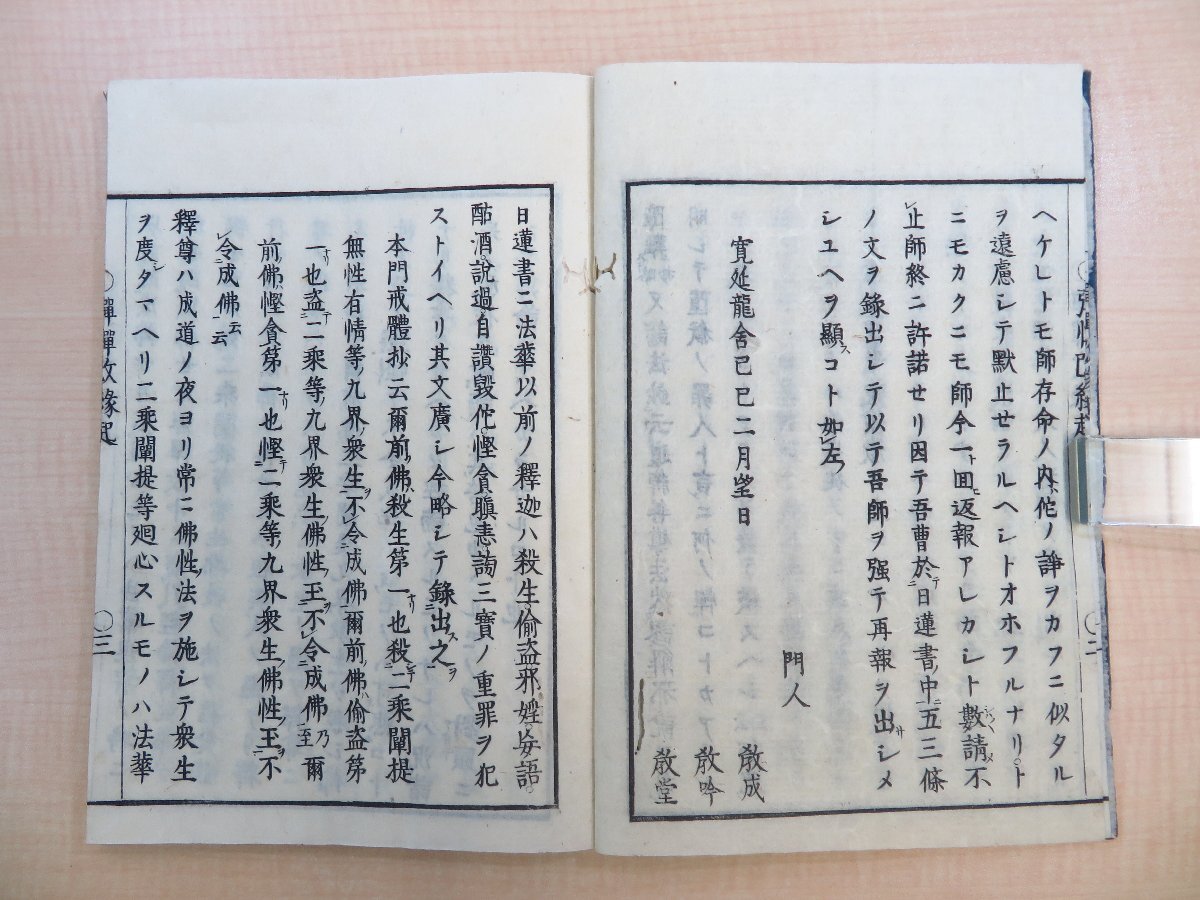 ヘケレトモ師存命ノ内佗ノ諍ヲカフニ似タル
ヲ遠慮シテ默止セラルヘシトオホフルナリト
ニモカクニモ師今一回返報アレカシト數請不
止師終ニ許諾せリ因テ吾曹於日蓮書中五三條
ノ文ヲ録出シテ以テ吾師ヲ强テ再報ヲ出シメ
シユヘヲ顯スコト如左
寛延龍舍己巳二月望日
門人
敎成
敎吟
敎堂
日蓮書ニ法華以前ノ釋迦ハ殺生偸盗邪婬妄語
酤酒說過自讚毀佗慳貪瞋恚謗三寶ノ重罪ヲ犯
ストイヘリ其文廣シ今略シテ錄出之
本門戒體抄云爾前佛殺生第一也殺二乘闡提
無性有情等九界衆生不令成佛爾前佛偸盗第
一也盗二乘等九界衆生佛性玉不令成佛乃至爾
前佛慳貪第一也慳二乘等九界衆生佛性玉不
令成佛云云
釋尊ハ成道ノ夜ヨリ常ニ佛性法ヲ施シテ衆生
ヲ度タマヘリ二乘闡提等廻心スルモノハ法華
三